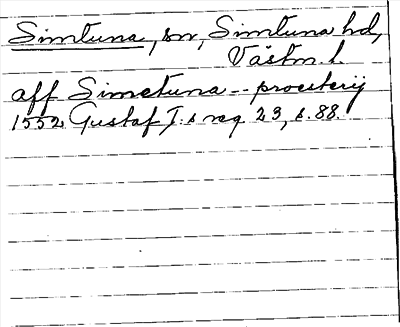 Simtuna, sn, Simtuna hd,
Västm. l.
aff Simetuna -- proesterij
1552. Gustaf I:s reg. 23, s. 88.